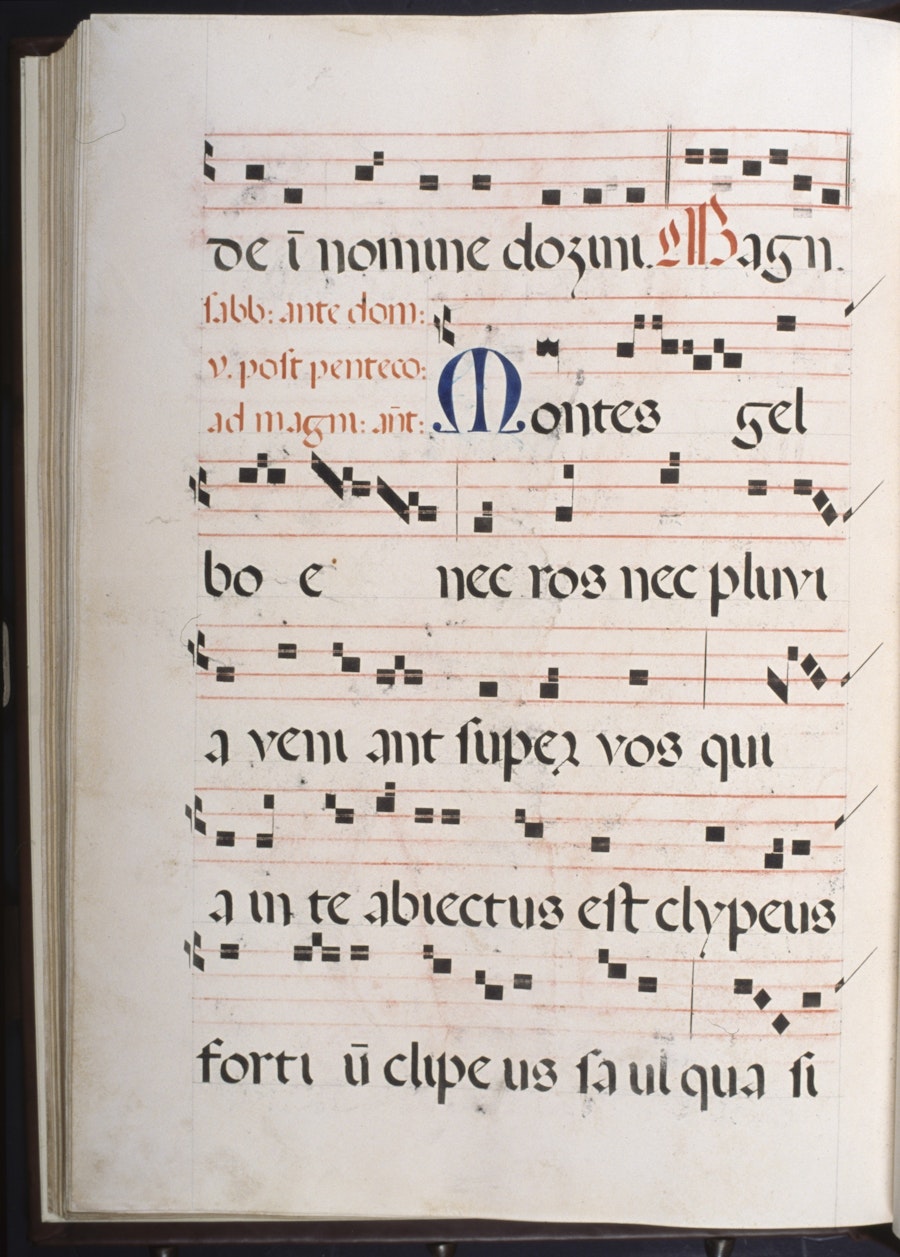 de ī nomine domini. Magn.
sabb: ante dom:
v. post penteco:
ad magni: añt:
Montes gel
bo e nec ros nec pluvi
a veni ant super vos qui
a in te abiectus est clypeus
forti ū clipe us sa ul qua si